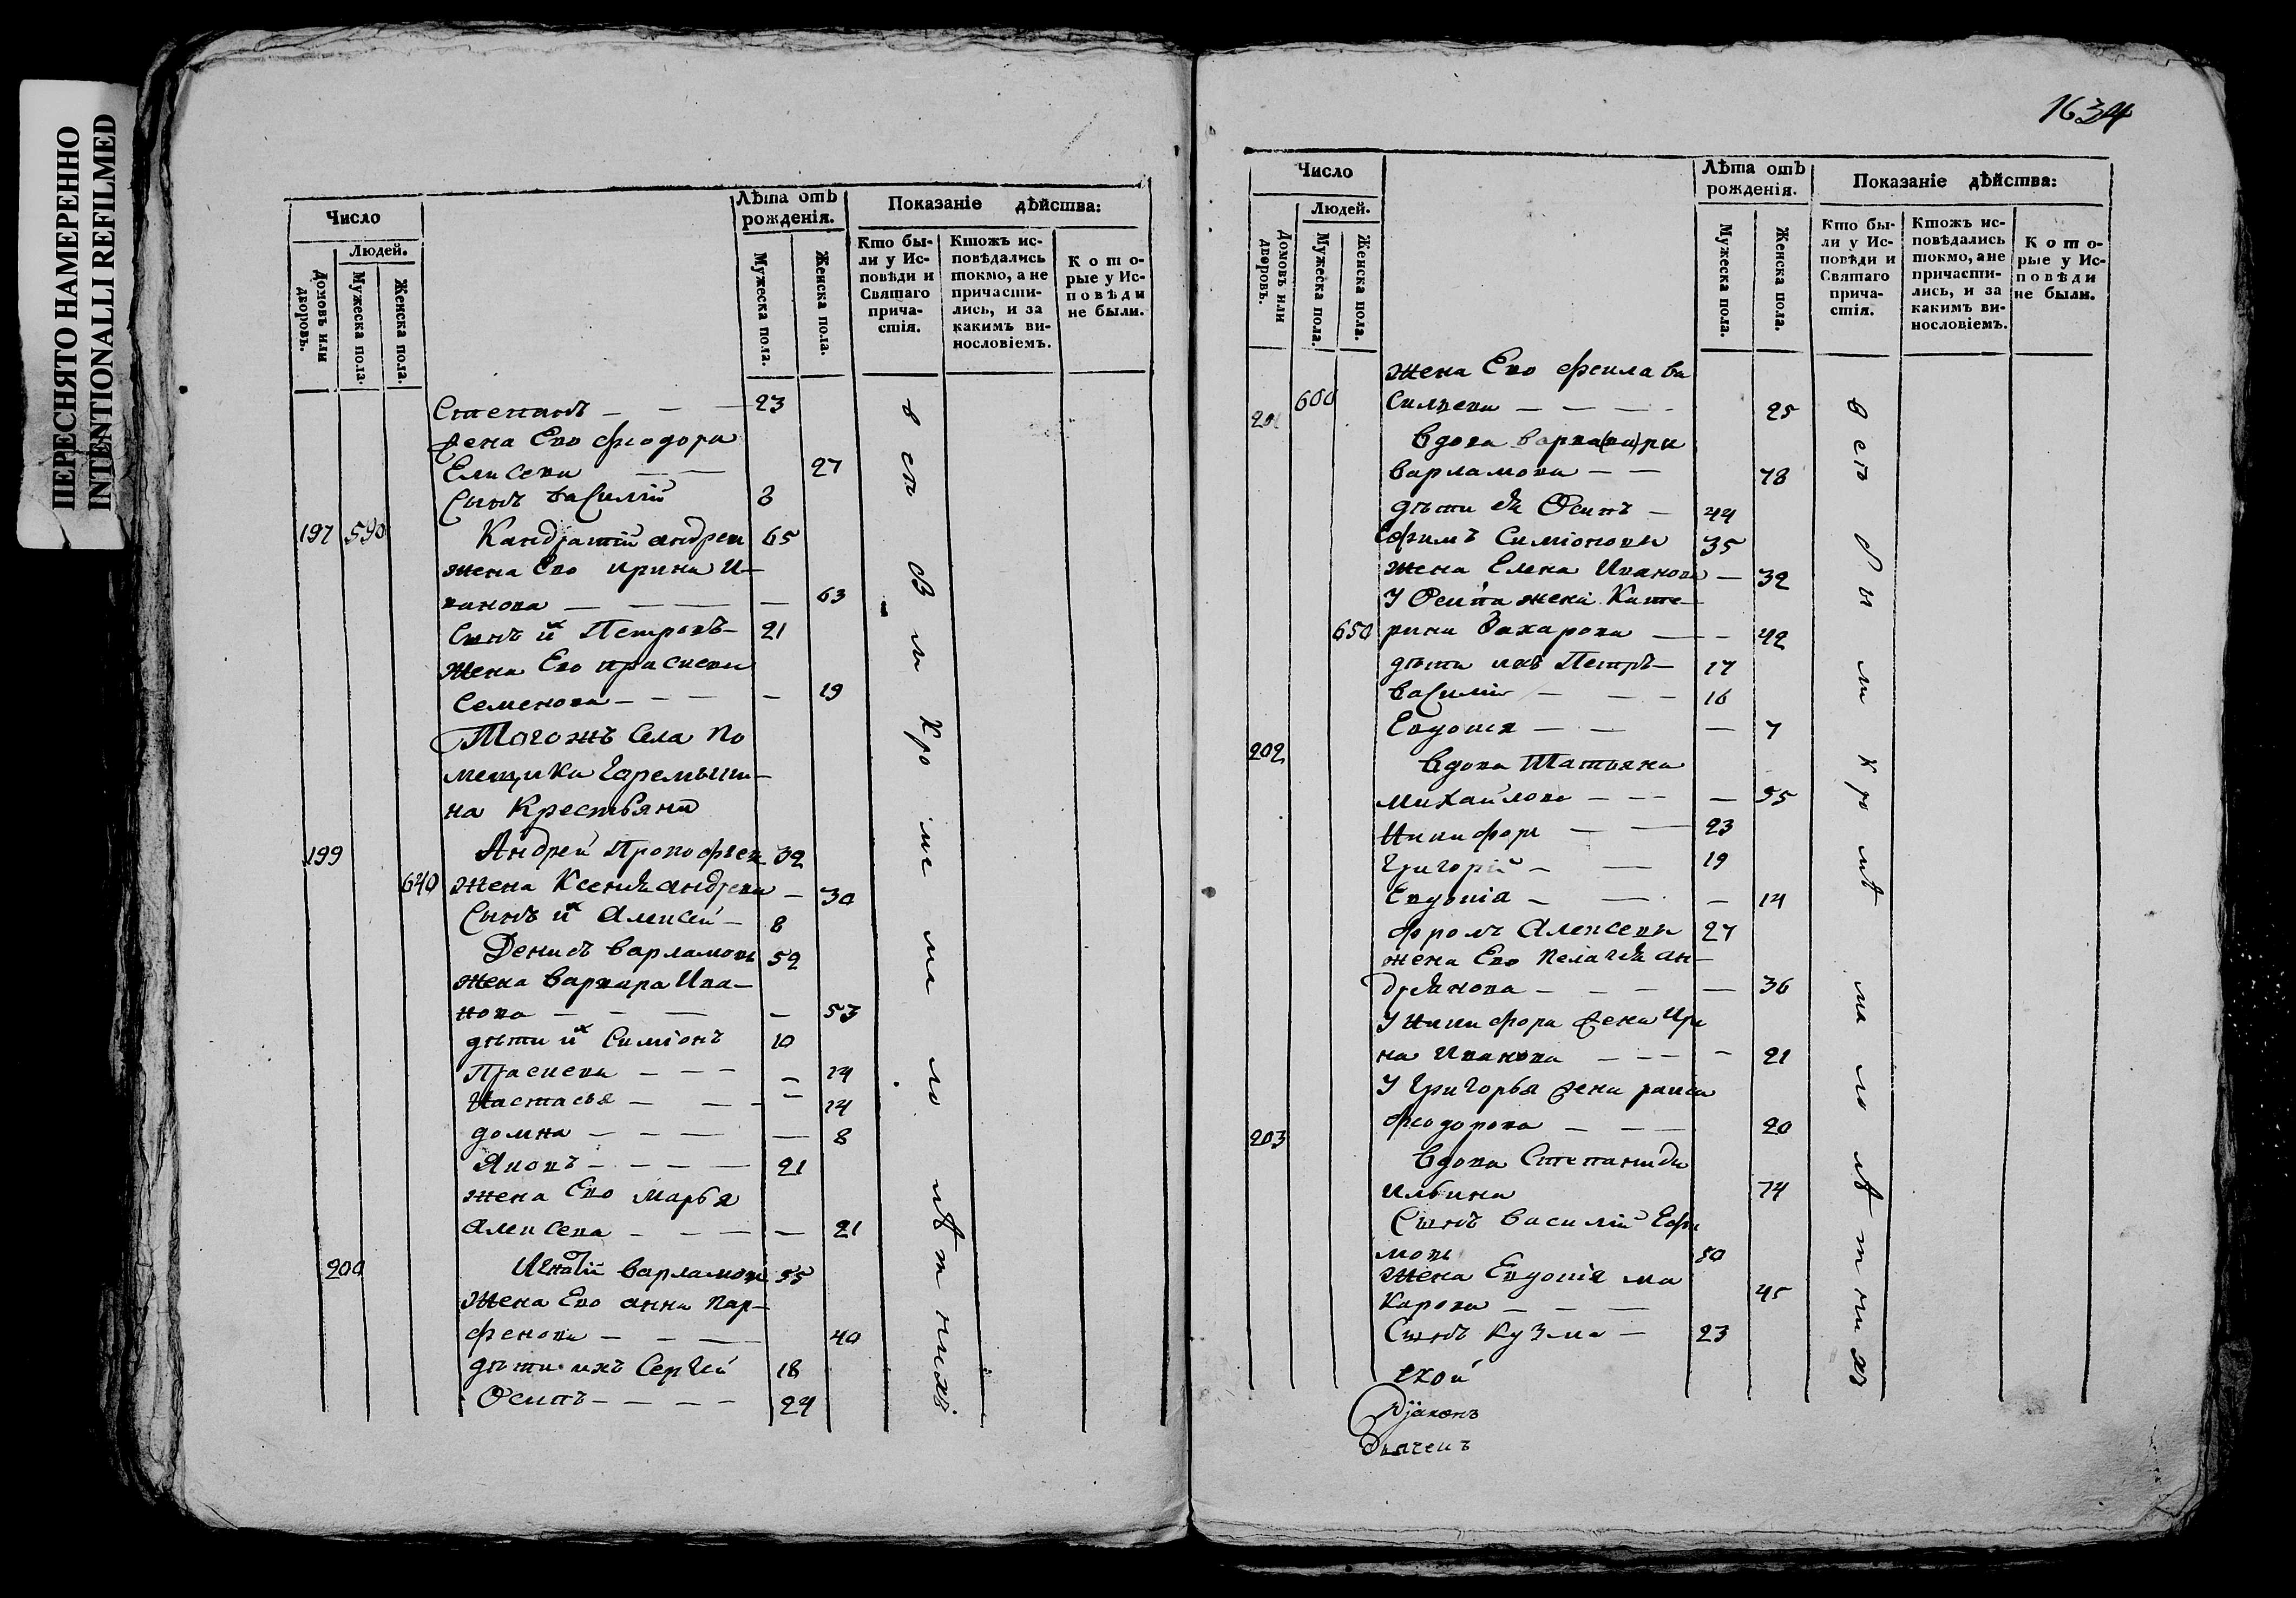 ПЕРЕСНЯТО НАМЕРЕННО
INTENTIONALLI REFILMED
Число
Людей.
Домовъ или дворовъ.
Мужеска пола.
Женска пола.
Лѣта отъ
рожденія.
Мужеска пола.
Женска пола.
Показаніе дѣйства:
Кто бы-
ли у Ис-
повѣди и
Святаго
прича-
стія.
Ктожъ ис-
повѣдались
токмо, а не
причасти-
лись, и за
какимъ ви-
нословіемъ.
Кото-
рые у Ис-
повѣди
не были.
Степанъ — — — 23
жена Ево Феодора
Елисева — — 27
Сынъ Василій 8
197 590 Кандратій андреи 65
жена Ево ирина И-
ванова — — — — 63
Сынъ их Петровъ — 21
жена Ево прасковъ
Семенова — — — — 19
Тогожъ Села По
мещика
на Крестьяни
199 Андрей Прокофьев 32
640 жена Ксенія андреева — 30
Сынъ их Алексей — 8
Денисъ Варламовъ 52
жена Варвара Ива-
нова — — — — 53
дѣти их Симіонъ 10
— — — — 14
Настасья — — — — 14
домна — — — — 8
Яковъ — — — — 21
жена Ево марья
алексева — — — — 21
200 Игнатій Варламовъ 55
жена Ево анна пар-
фенова — — — 40
дѣти ихъ Сергѣй 18
Осипъ — — — — 24
все были кроме малолѣтнихъ
1634
Число
Людей.
Домовъ или дворовъ.
Мужеска пола.
Женска пола.
Лѣта отъ
рожденія.
Мужеска пола.
Женска пола.
Показаніе дѣйства:
Кто бы-
ли у Ис-
повѣди и
Святаго
прича-
стія.
Ктожъ ис-
повѣдались
токмо, а не
причасти-
лись, и за
какимъ ви-
нословіемъ.
Кото-
рые у Ис-
повѣди
не были.
жена Ево
201 600 — — — — 25
Вдова
Варламова — — 78
дѣти ея Осипъ — 44
Ефимъ Симіоновы 35
жена Елена Иванова — 32
У Осипа жена Кате-
650 рина Захарова — — 42
дѣти ихъ Петръ — 17
Василій — — — 16
Евдокія — — — 7
202 Вдова Татьяна
Михайлова — — — 55
Никифоръ — — 23
Григорій — — 19
Евдокія — — — 14
Фролъ Алексевъ 27
жена Ево Пелагѣя ан-
дреянова — — — — 36
У Никифора жена Ири
на Иванова — — — — 21
У Григорья жена раиса
Феодорова — — — 20
203 Вдова Степанида
ильина 74
Сынъ Василій Ефи
мовъ 50
жена Евдокія ма
карова — — — 45
Сынъ Кузма — 23
все были кромѣ малолѣтнихъ
ской
Діаконъ
Дьячекъ